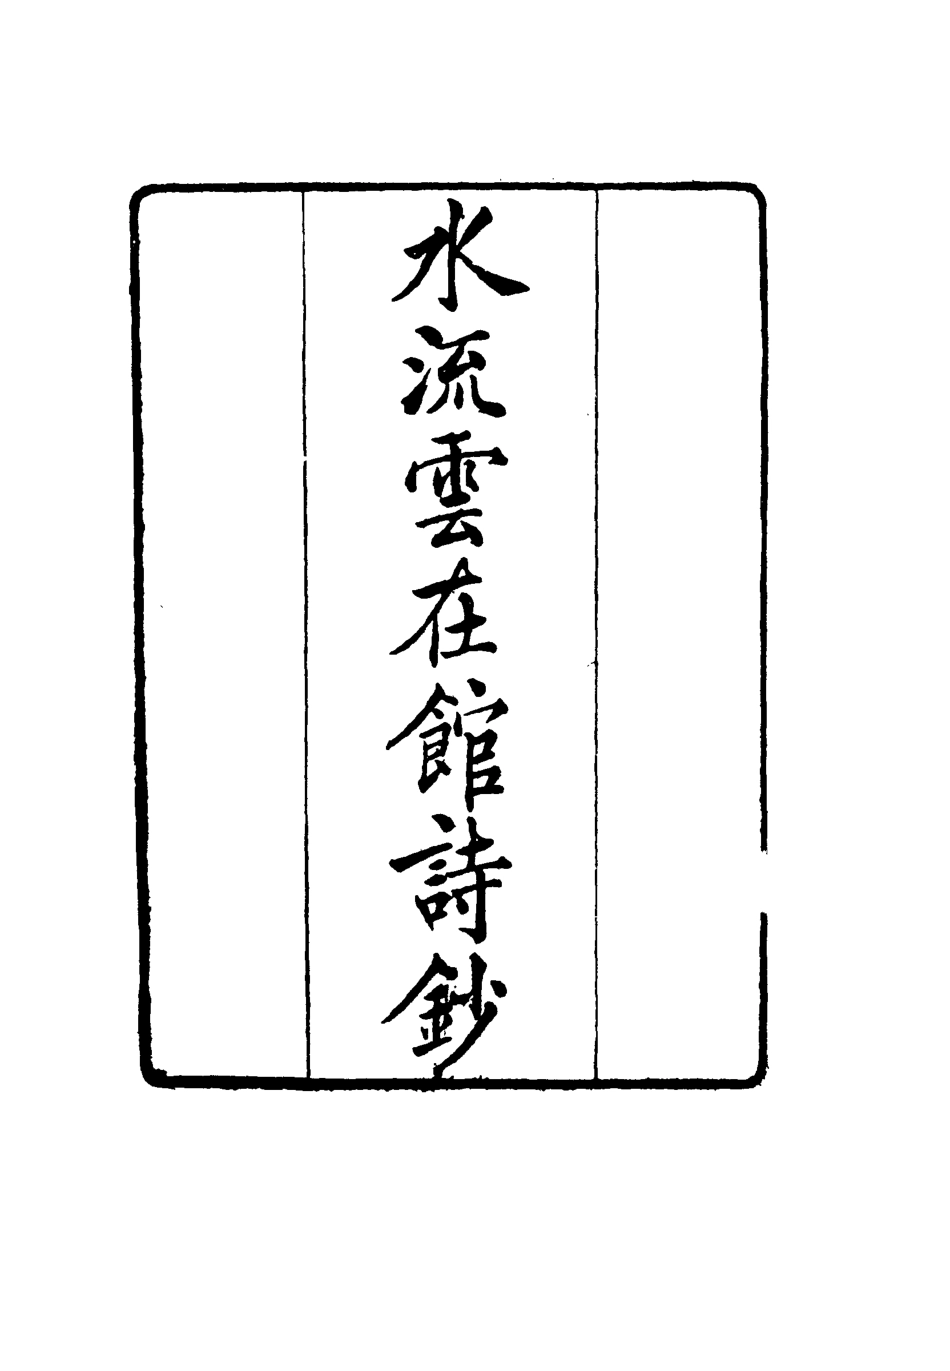 水流雲在館詩鈔